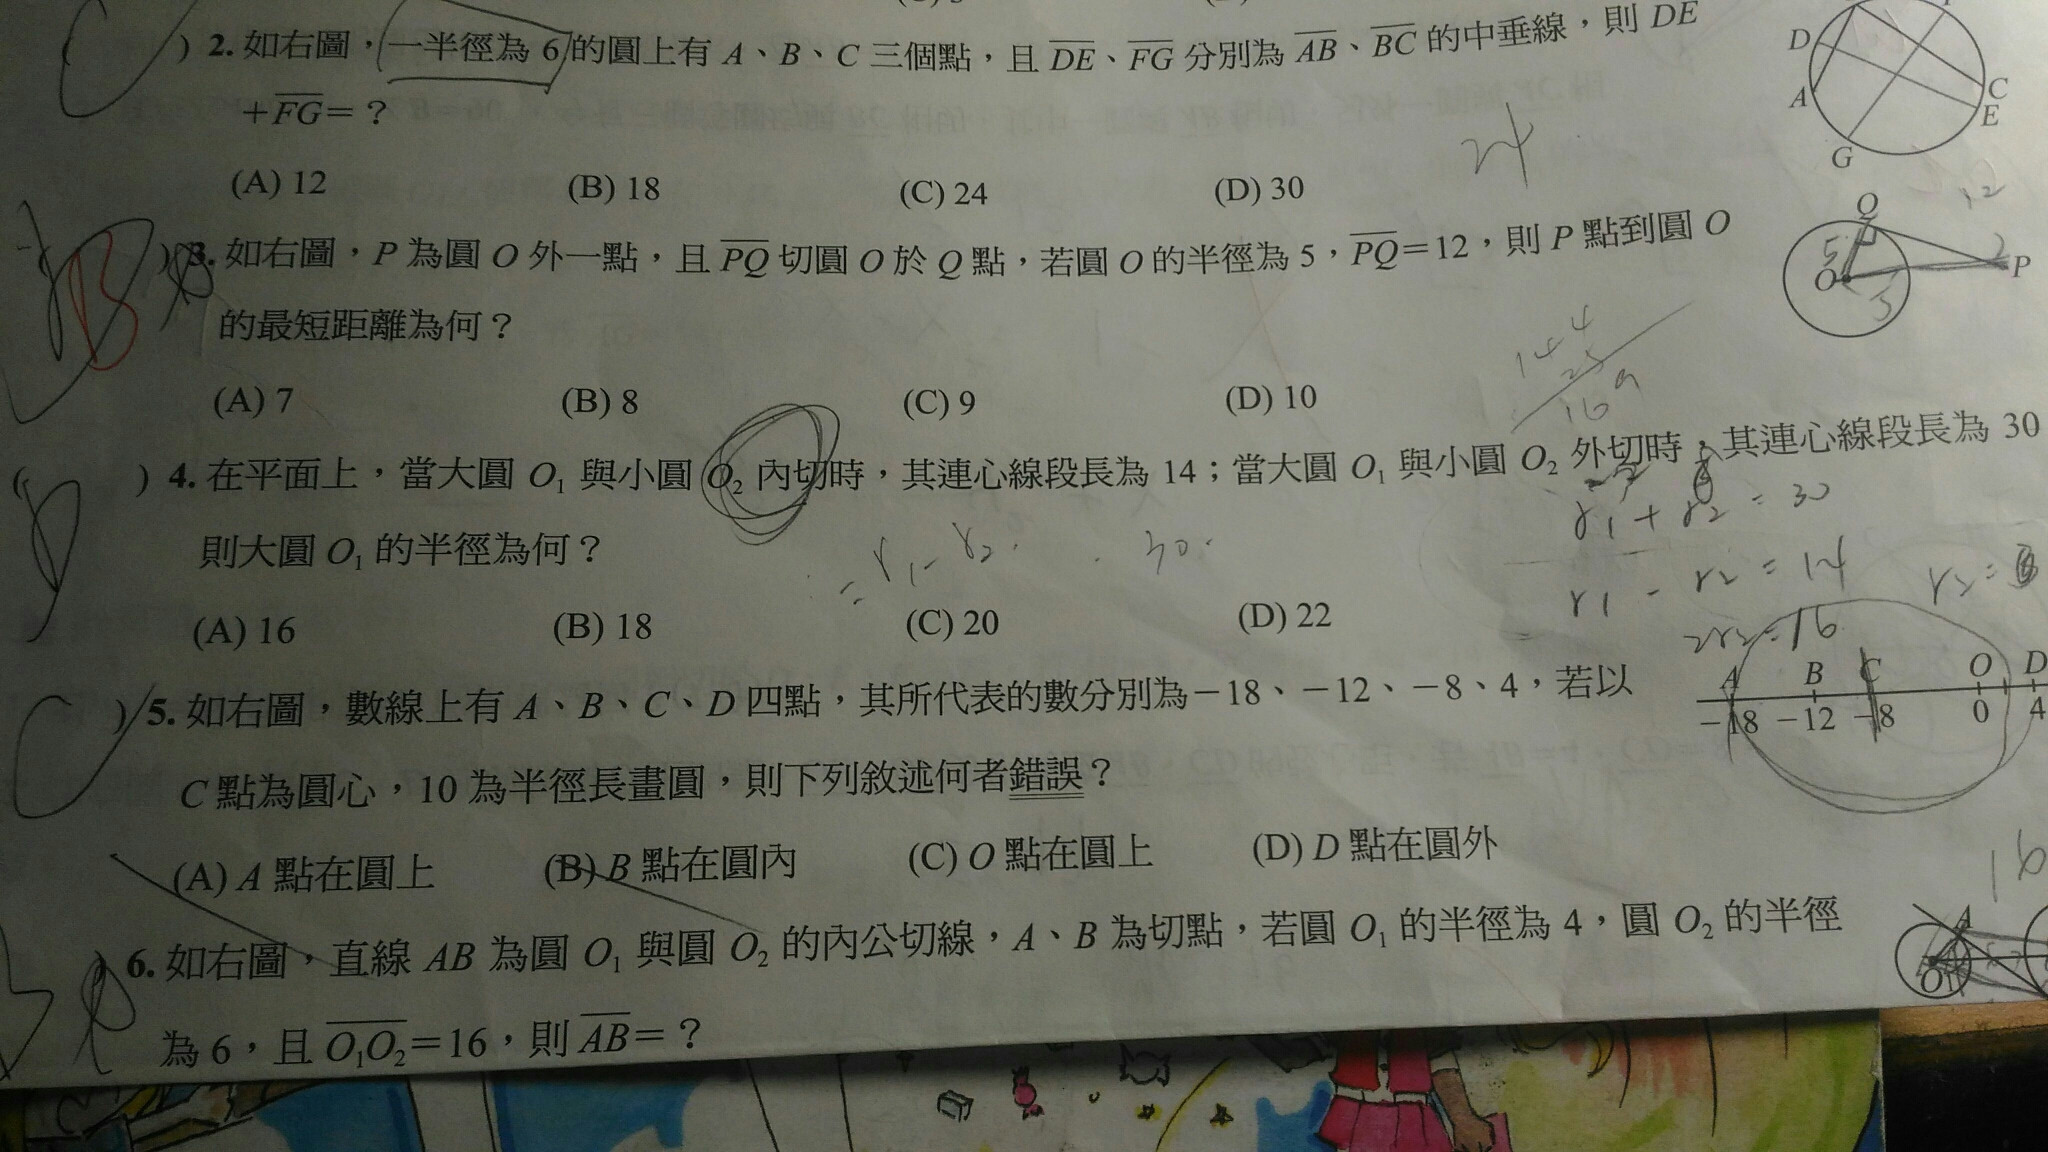 ) 2. 如右圖，一半徑為 6 的圓上有 A、B、C 三個點，且 DE、FG 分別為 AB、BC 的中垂線，則 DE
+FG=？
(A) 12 (B) 18 (C) 24 (D) 30
24
D
A
G
C
E
B
) 3. 如右圖，P 為圓 O 外一點，且 PQ 切圓 O 於 Q 點，若圓 O 的半徑為 5，PQ=12，則 P 點到圓 O
的最短距離為何？
(A) 7 (B) 8 (C) 9 (D) 10
144
25
169
Q
12
5
O
P
5
( ) 4. 在平面上，當大圓 O₁ 與小圓 O₂ 內切時，其連心線段長為 14；當大圓 O₁ 與小圓 O₂ 外切時，其連心線段長為 30
則大圓 O₁ 的半徑為何？
(A) 16 (B) 18 (C) 20 (D) 22
= r1 - r2
30
r1 + r2 = 30
r1 - r2 = 14
2r2 = 16
C
) 5. 如右圖，數線上有 A、B、C、D 四點，其所代表的數分別為－18、－12、－8、4，若以
C 點為圓心，10 為半徑長畫圓，則下列敘述何者錯誤？
(A) A 點在圓上 (B) B 點在圓內 (C) O 點在圓上 (D) D 點在圓外
A B C O D
－18 －12 －8 0 4
) 6. 如右圖，直線 AB 為圓 O₁ 與圓 O₂ 的內公切線，A、B 為切點，若圓 O₁ 的半徑為 4，圓 O₂ 的半徑
為 6，且 O₁O₂=16，則 AB=？
A